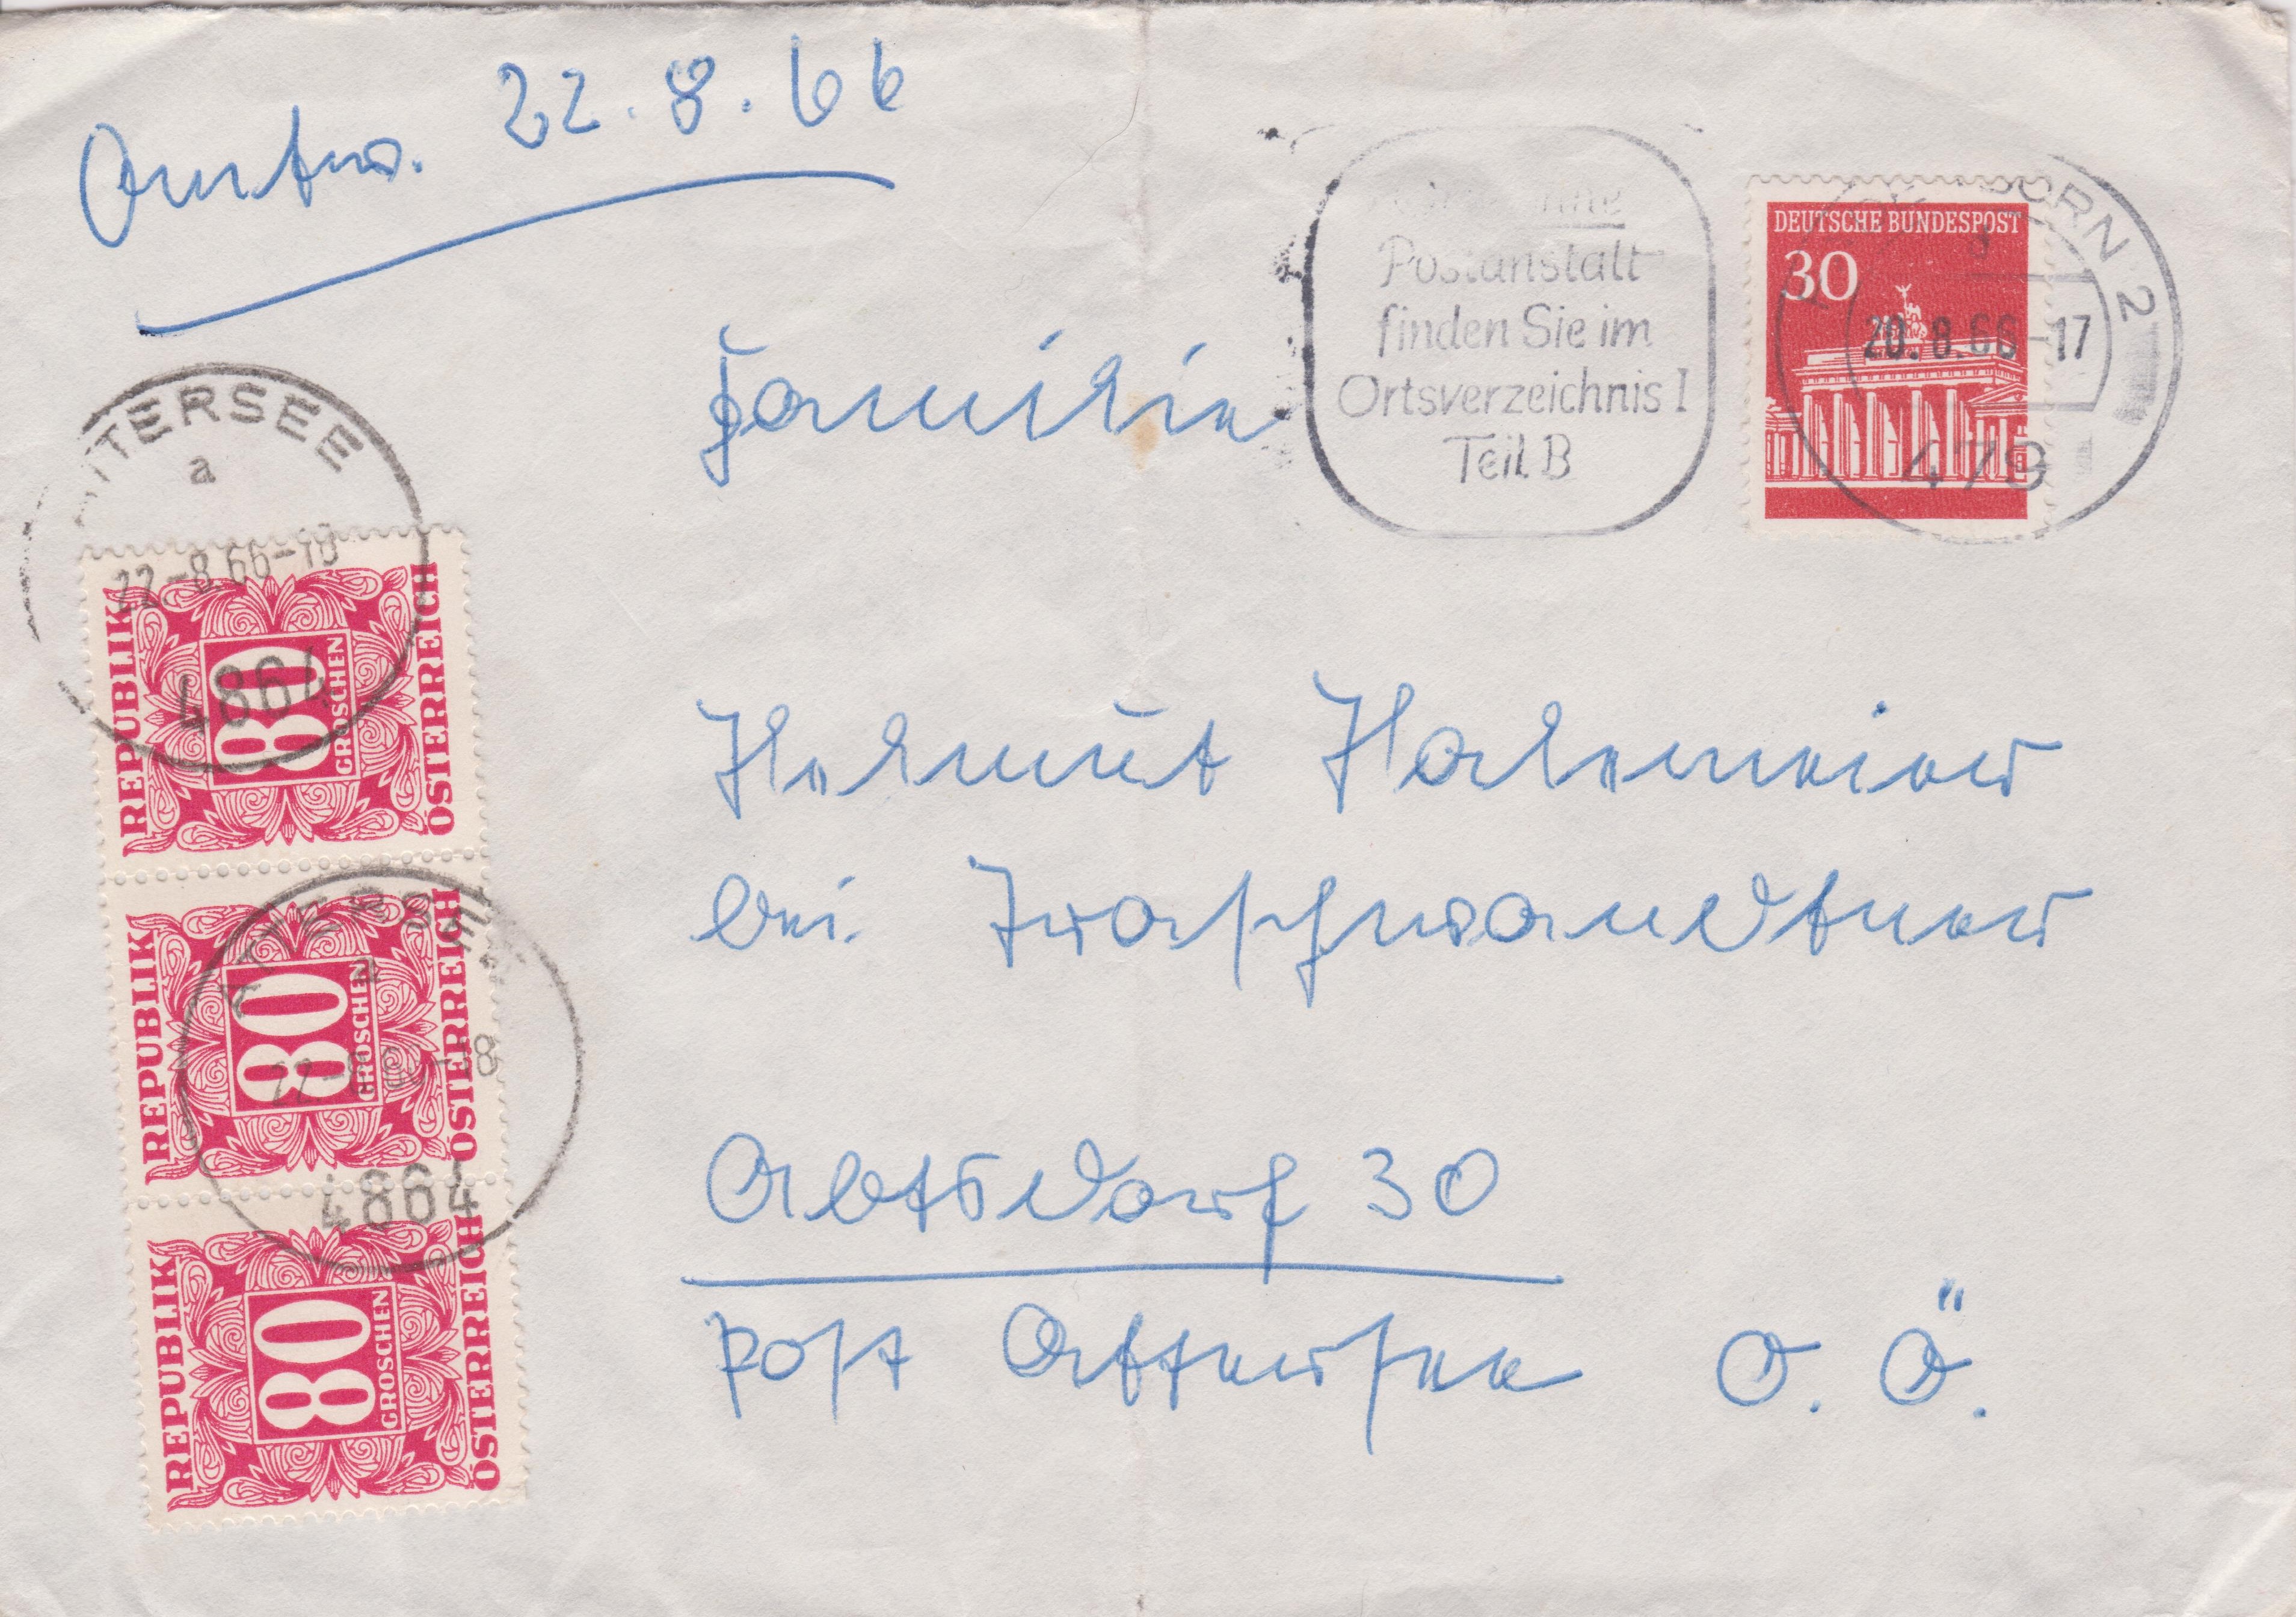 Antw. 22.8.66
Postanstalt
finden Sie im
Ortsverzeichnis I
Teil B
DEUTSCHE BUNDESPOST
30
ORN 2
20.8.66-17
479
Familie
Helmut Halemeier
bei
Abtsdorf 30
Post Attersee O.Ö.
ATTERSEE
a
22.-8.66-18
4864
REPUBLIK
80
GROSCHEN
ÖSTERREICH
ATTERSEE
a
22.-8.66-18
4864
REPUBLIK
80
GROSCHEN
ÖSTERREICH
REPUBLIK
80
GROSCHEN
ÖSTERREICH